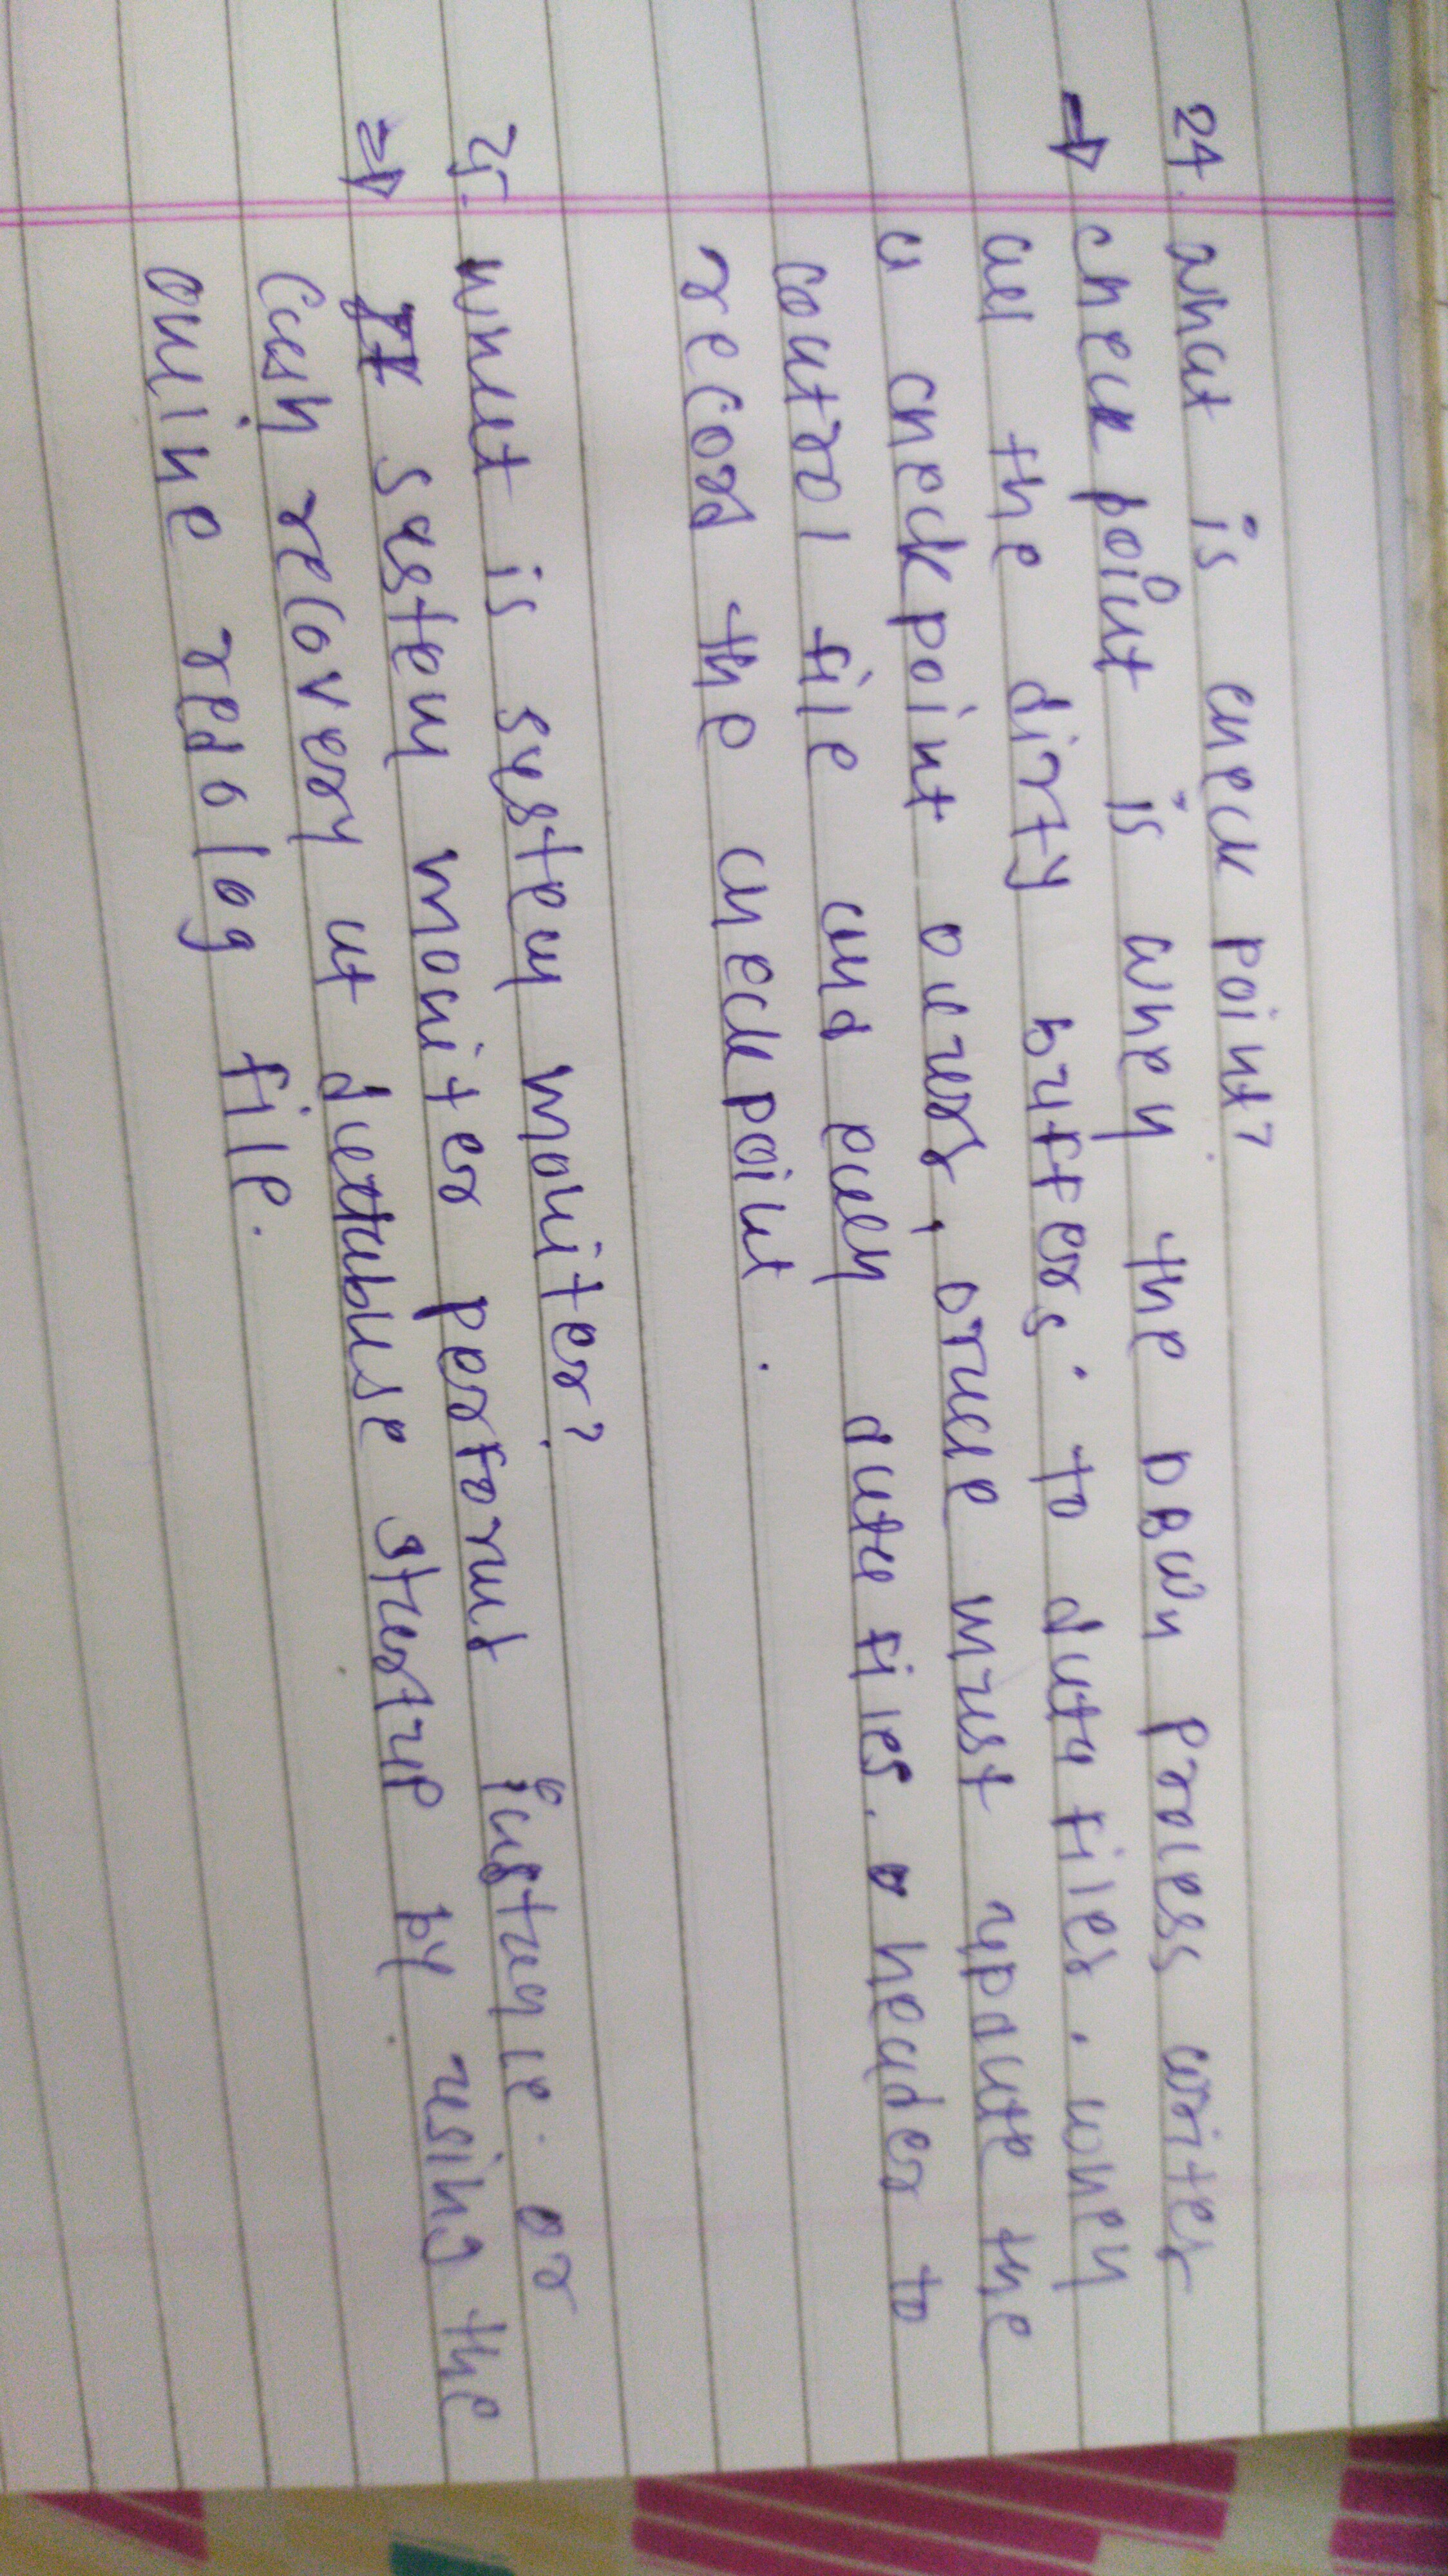 24. what is check point?
→ check point is when the DBWn process writes
all the dirty buffers. to data files. when
a checkpoint ouers, oracle must update the
control file and each data files. header to
record the checkpoint.
25. what is system moniter?
⇒ system moniter performt instance. or
Cash recovery at database startup by using the
online redo log file.